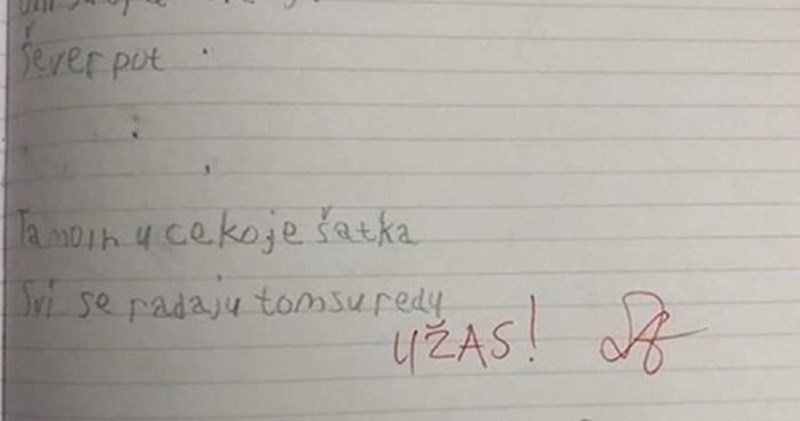 šever pot
Tamoin u cekoje šatka
Svi se radaju tomsuredu
UŽAS!